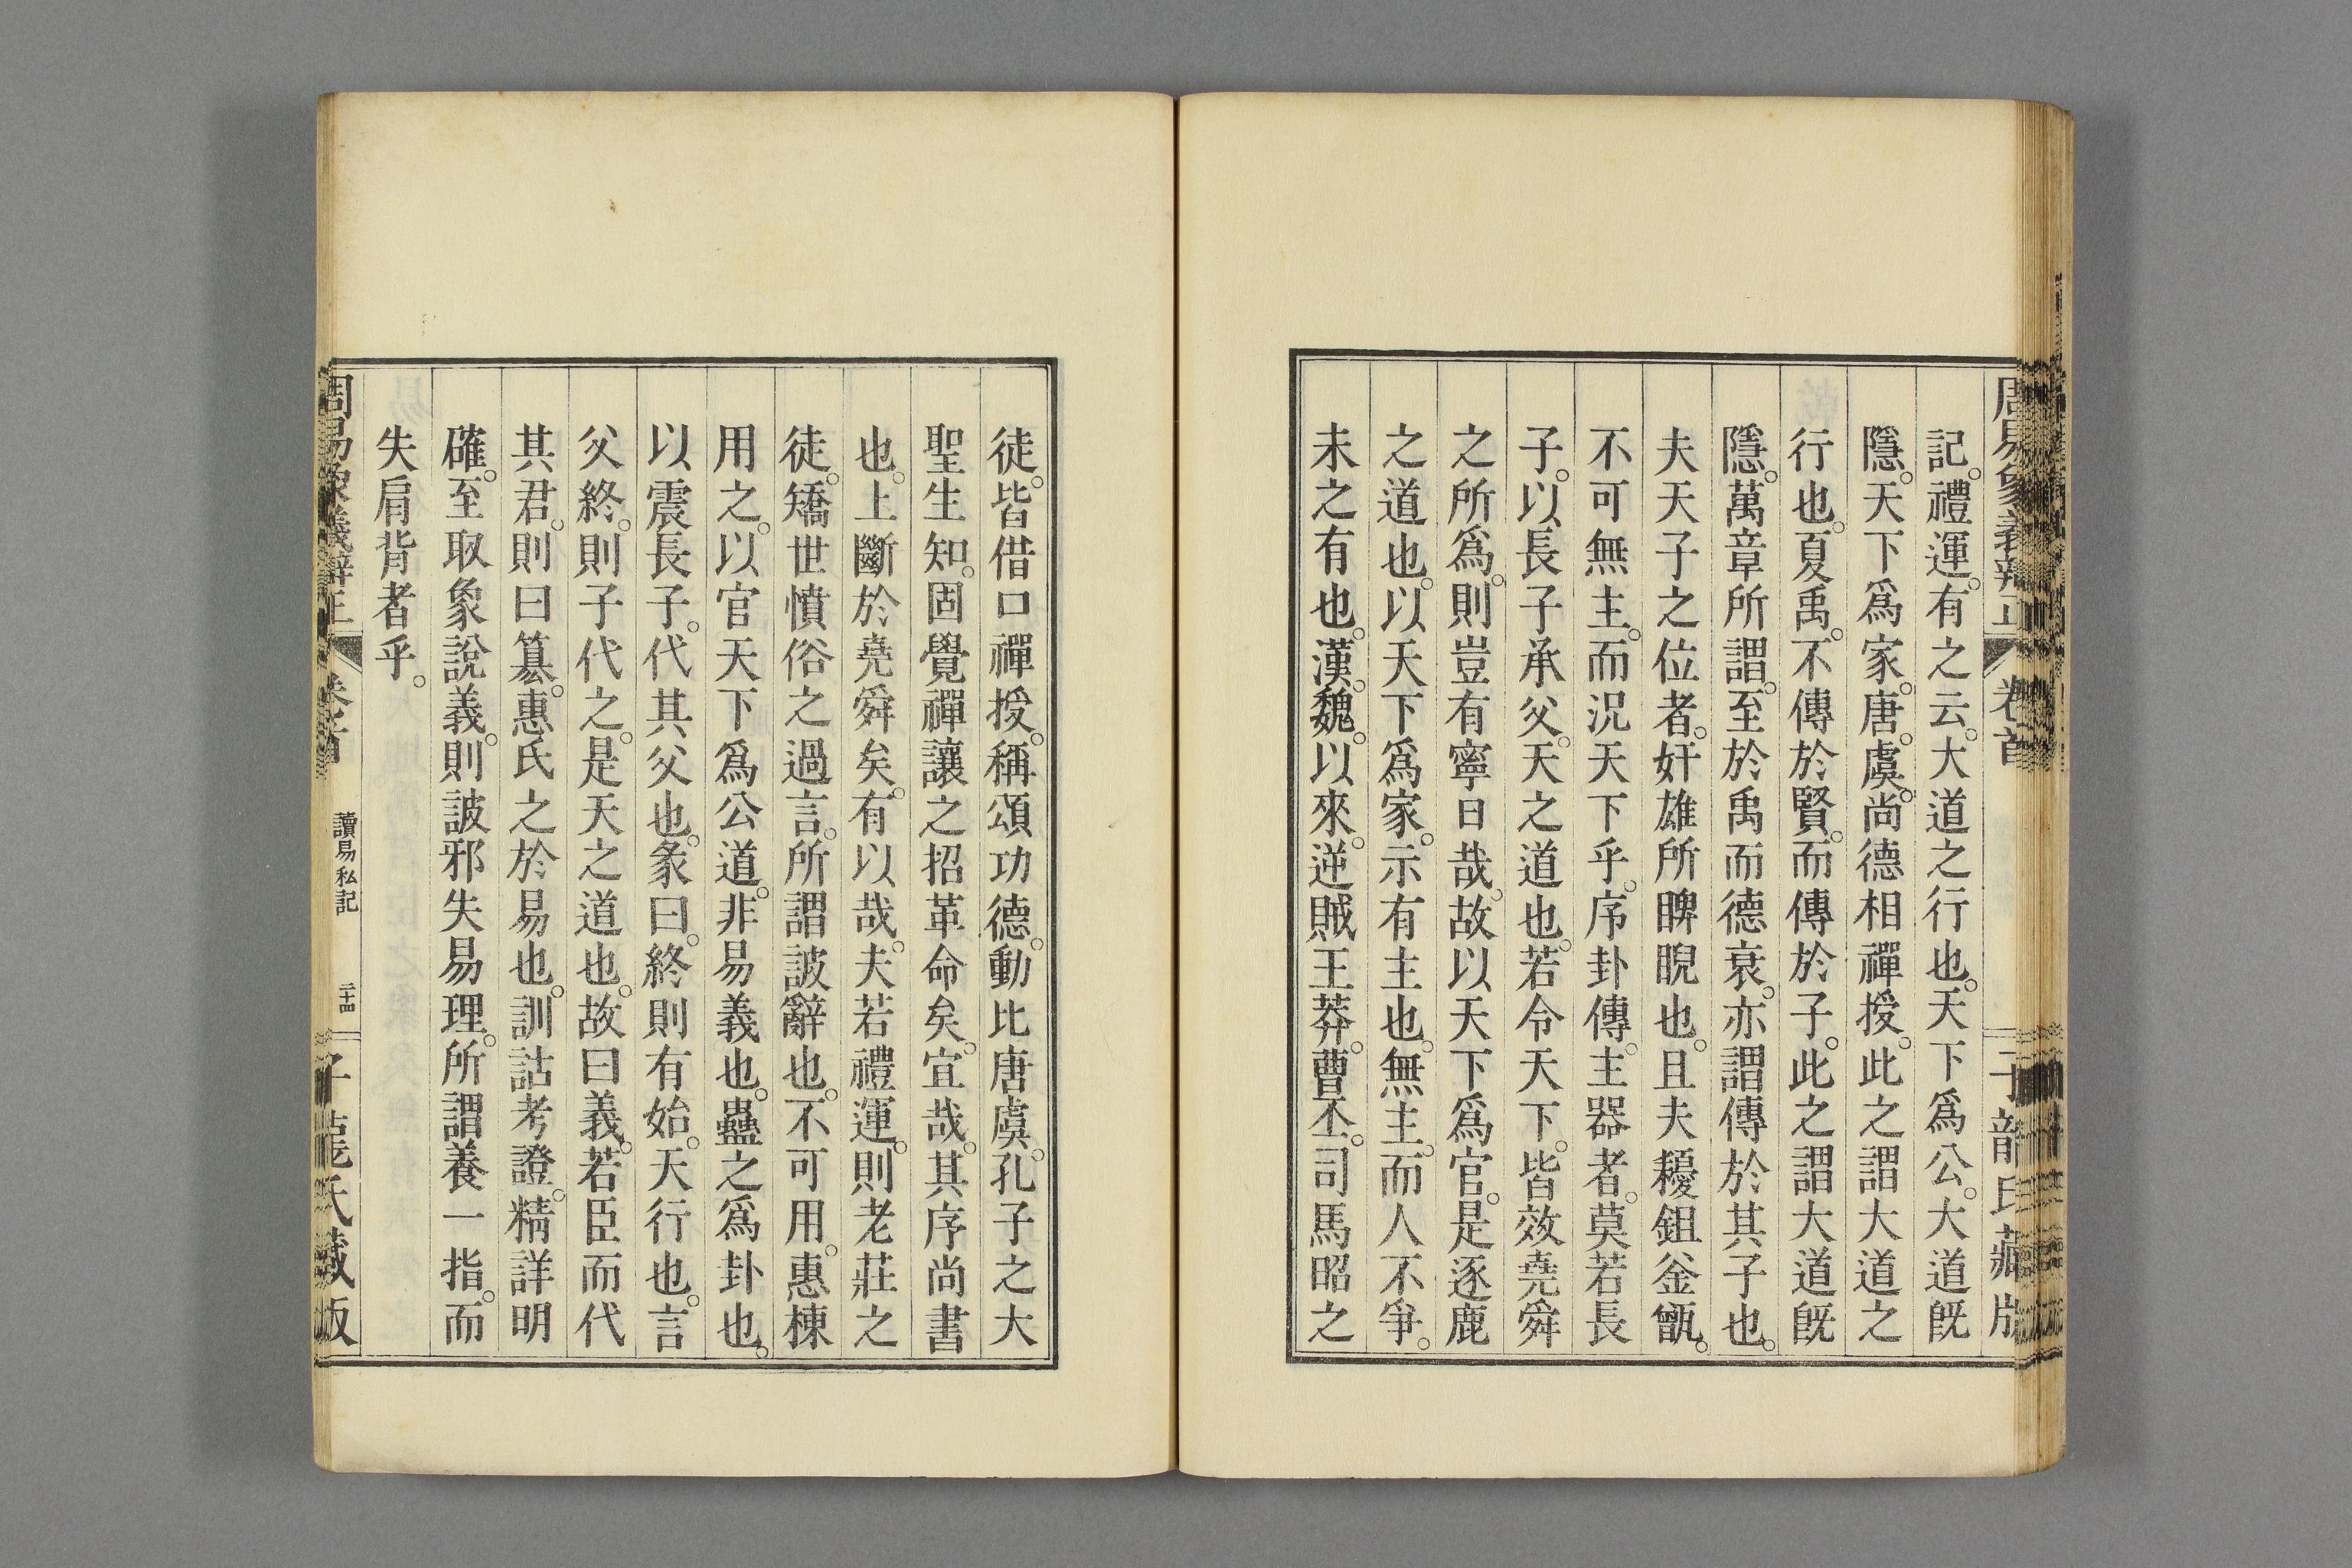 周易象義辨正 卷首 子龍氏藏版
記。禮運。有之云。大道之行也。天下爲公。大道旣
隱。天下爲家。唐。虞。尚德相禪授。此之謂大道之
行也。夏禹。不傳於賢。而傳於子。此之謂大道旣
隱。萬章所謂。至於禹而德衰。亦謂傳於其子也。
夫天子之位者。奸雄所睥睨也。且夫耰鉏釡甑。
不可無主。而況天下乎。序卦傳。主器者。莫若長
子。以長子承父。天之道也。若令天下。皆效堯舜
之所爲。則豈有寧日哉。故以天下爲官。是逐鹿
之道也。以天下爲家。示有主也。無主。而人不爭。
未之有也。漢。魏。以來。逆賊王莽。曹丕。司馬昭之
徒。皆借口禪授。稱頌功德。動比唐虞。孔子之大
聖生知。固覺禪讓之招革命矣。宜哉。其序尚書
也。上斷於堯舜矣。有以哉。夫若禮運。則老莊之
徒。矯世憤俗之過言。所謂詖辭也。不可用。惠棟
用之。以官天下爲公道。非易義也。蠱之爲卦也。
以震長子。代其父也。彖曰。終則有始。天行也。言
父終。則子代之。是天之道也。故曰義。若臣而代
其君。則曰簒。惠氏之於易也。訓詁考證。精詳明
確。至取象說義。則詖邪失易理。所謂養一指。而
失肩背者乎。
周易象義辨正 卷首 讀易私記 二十四 子龍氏藏版